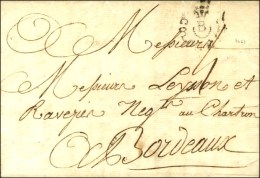 Messieurs
Messieurs Leyson et
Raveries Negts au Chartron
A Bordeaux